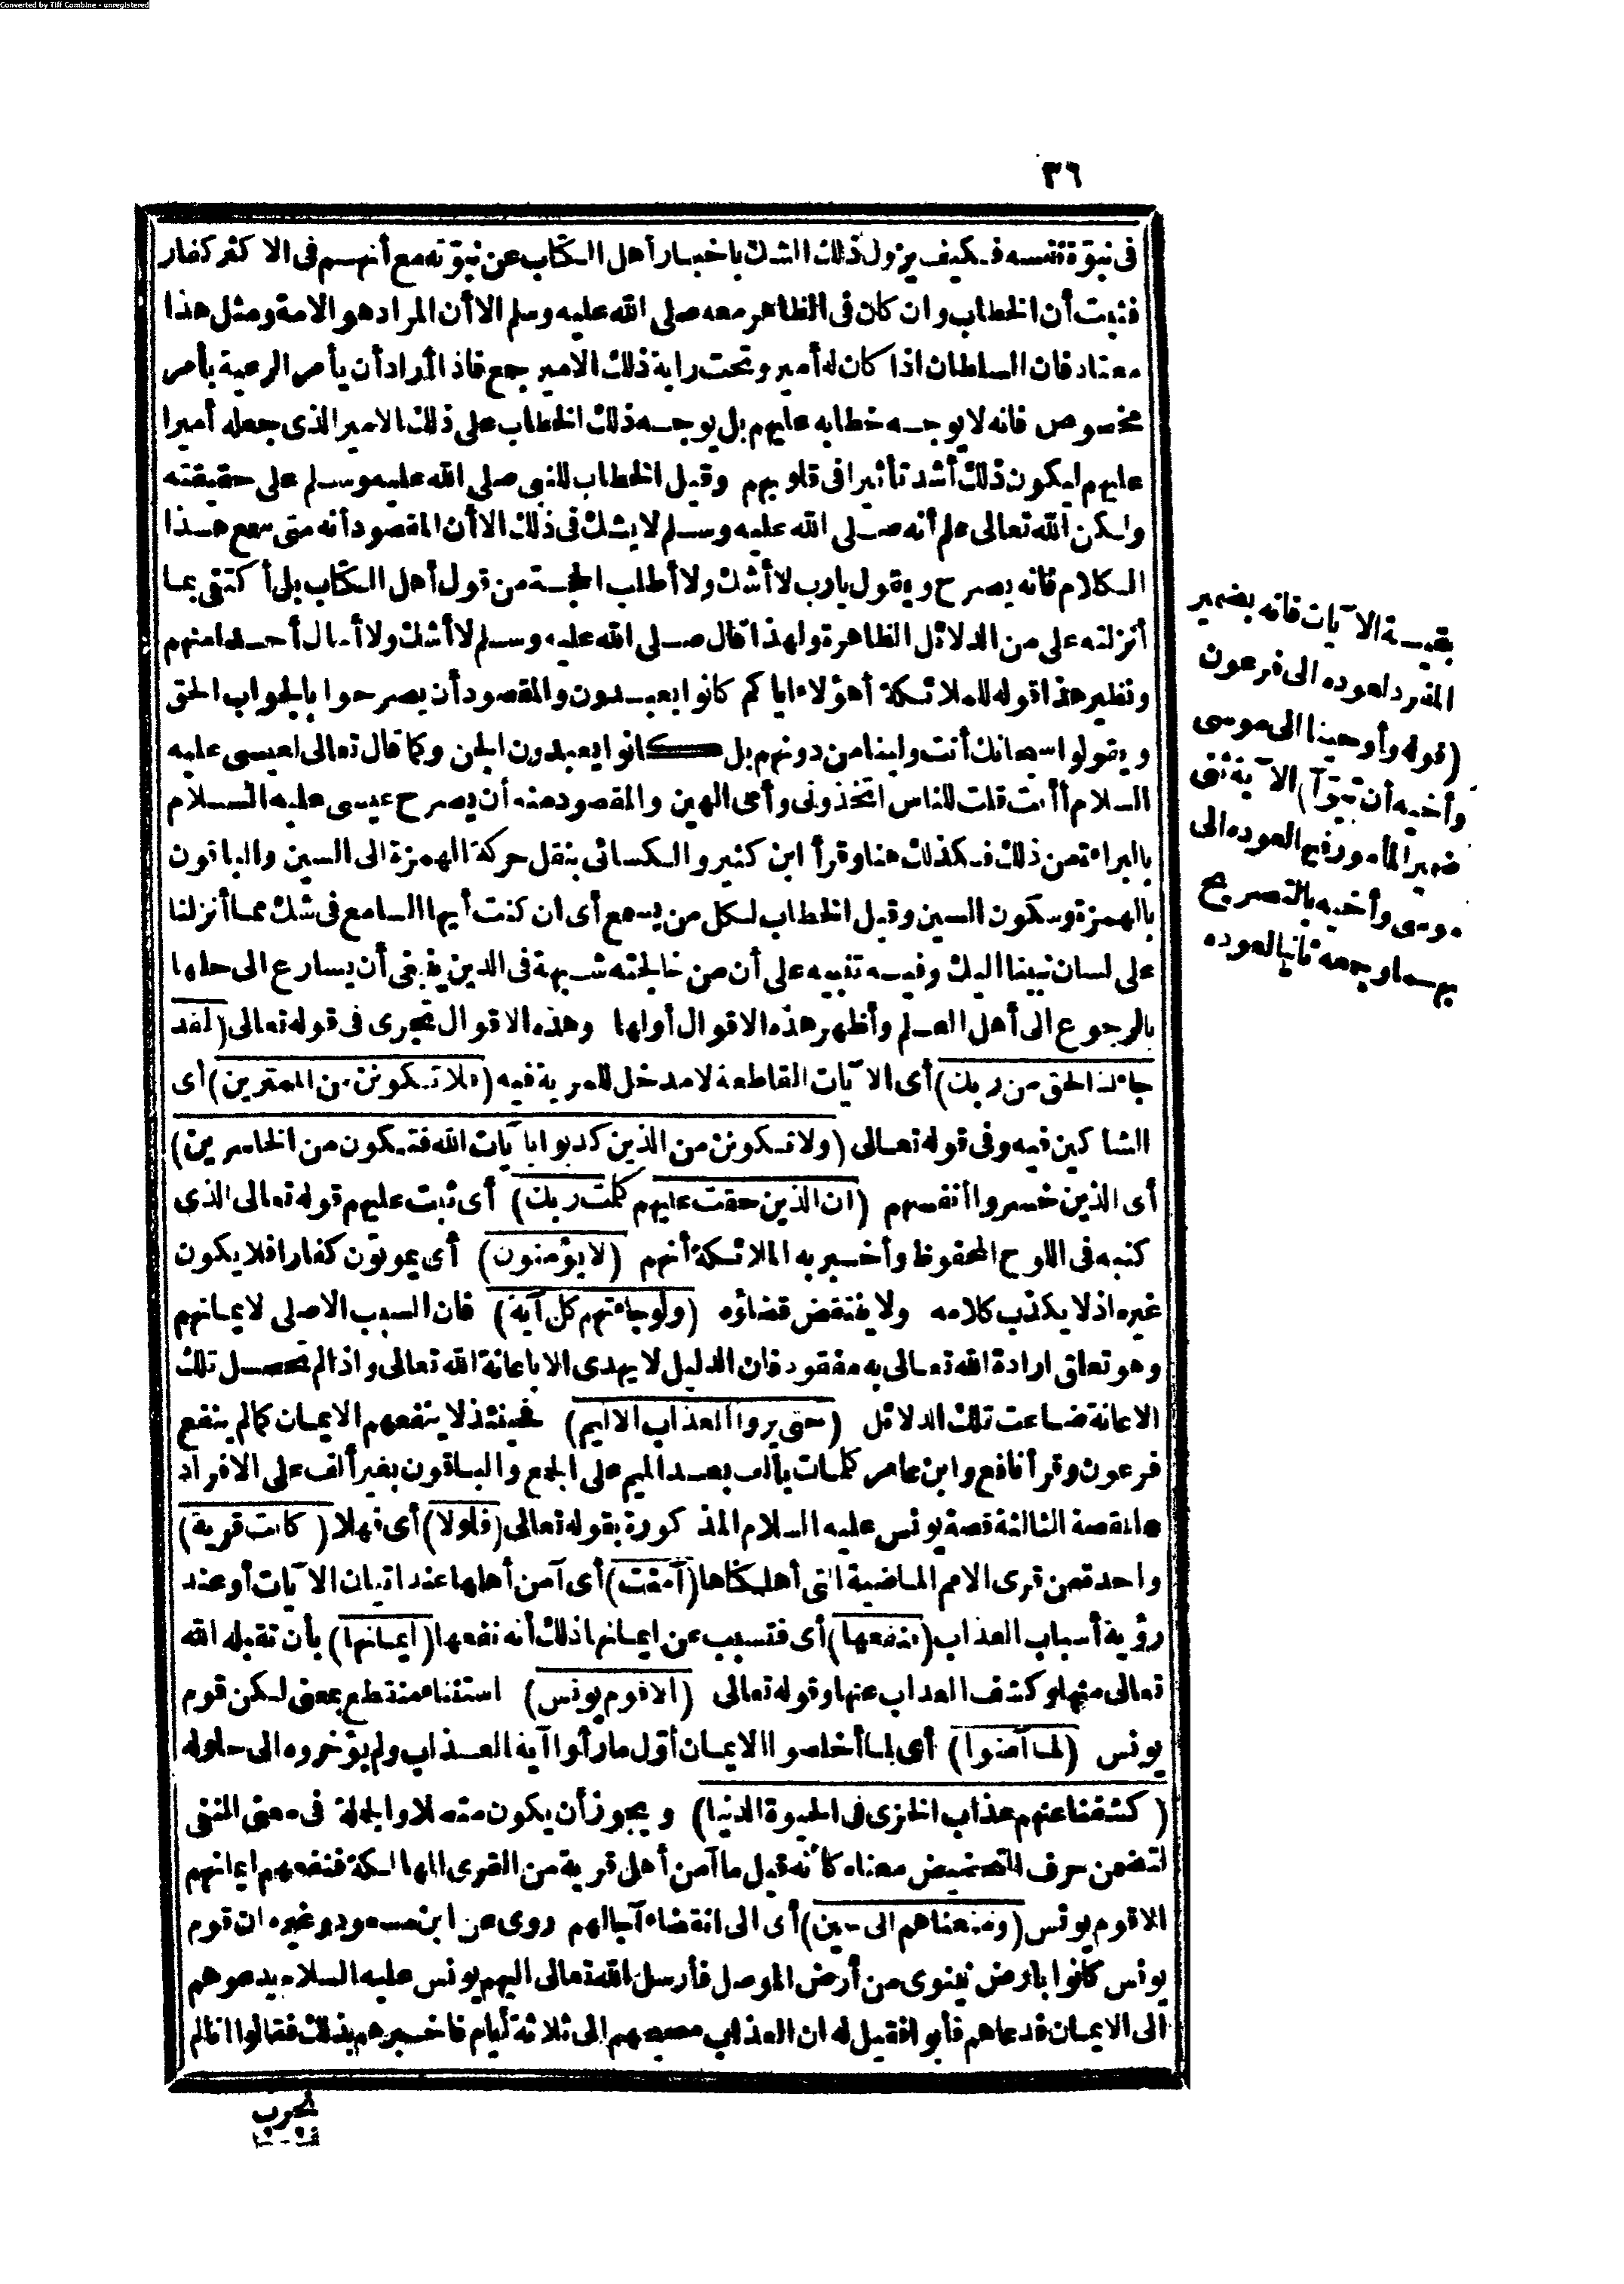 Converted by Tiff Combine - unregistered
٣٦
فى نبوّة نفسه فكيف يزول ذلك الشك باخبار أهل الكتاب عن نبوّته مع أنهم فى الاكثر كفار
فثبت أن الخطاب وان كان فى الظاهر معه صلى الله عليه وسلم الا أن المراد هو الامة ومثل هذا
معتاد فان السلطان اذا كان له أمير وتحت راية ذلك الامير جمع فاذا أراد أن يأمر الرعية بأمر
مخصوص فانه لا يوجه خطابه عليهم بل يوجه ذلك الخطاب على ذلك الامير الذى جعله أميرا
عليهم ليكون ذلك أشد تأثيرا فى قلوبهم وقيل الخطاب للنبى صلى الله عليه وسلم على حقيقته
ولكن الله تعالى علم أنه صلى الله عليه وسلم لا يشك فى ذلك الا أن المقصود أنه متى سمع هذا
الكلام فانه يصرح ويقول يارب لا أشك ولا أطلب الحجة من قول أهل الكتاب بل أكتفى بما
أنزلته على من الدلائل الظاهرة ولهذا قال صلى الله عليه وسلم لا أشك ولا أسال أحدا منهم
ونظير هذا قوله للملائكة أهؤلاء اياكم كانوا يعبدون والمقصود أن يصرحوا بالجواب الحق
ويقولوا سبحانك أنت ولينا من دونهم بل كانوا يعبدون الجن وكما قال تعالى لعيسى عليه
السلام أأنت قلت للناس اتخذونى وأمى الهين والمقصود منه أن يصرح عيسى عليه السلام
بالبراءة من ذلك فكذلك هنا وقرأ ابن كثير والكسائى بنقل حركة الهمزة الى السين والباقون
بالهمزة وسكون السين وقيل الخطاب لكل من يسمع أى ان كنت أيها السامع فى شك مما أنزلنا
على لسان نبينا اليك وفيه تنبيه على أن من خالجته شبهة فى الدين ينبغى أن يسارع الى حلها
بالرجوع الى أهل العلم وأظهر هذه الاقوال أولها وهذه الاقوال تجرى فى قوله تعالى (لقد
جاءك الحق من ربك) أى الآيات القاطعة لا مدخل للمرية فيه (فلا تكونن من الممترين) أى
الشاكين فيه وفى قوله تعالى (ولا تكونن من الذين كذبوا بآيات الله فتكون من الخاسرين)
أى الذين خسروا أنفسهم (ان الذين حقت عليهم كلمت ربك) أى ثبت عليهم قوله تعالى الذى
كتبه فى اللوح المحفوظ وأخبر به الملائكة أنهم (لا يؤمنون) أى يموتون كفارا فلا يكون
غيره اذ لا يكذب كلامه ولا ينتقض قضاؤه (ولو جاءتهم كل آية) فان السبب الاصلى لايمانهم
وهو تعلق ارادة الله تعالى به مفقود فان الدليل لا يهدى الا باعانة الله تعالى واذا لم تحصل تلك
الاعانة ضاعت تلك الدلائل (حتى يروا العذاب الاليم) فحينئذ لا ينفعهم الايمان كما لم ينفع
فرعون وقرأ نافع وابن عامر كلمات بألف بعد الميم على الجمع والباقون بغير ألف على الافراد
*القصة الثالثة قصة يونس عليه السلام المذكورة بقوله تعالى (فلولا) أى فهلا (كانت قرية)
واحدة من قرى الامم الماضية التى أهلكناها (آمنت) أى آمن أهلها عند اتيان الآيات أو عند
رؤية أسباب العذاب (فنفعها) أى فتسبب عن ايمانها ذلك أنه نفعها (ايمانها) بأن تقبله الله
تعالى منها وكشف العذاب عنها وقوله تعالى (الا قوم يونس) استثناء منقطع بمعنى لكن قوم
يونس (لما آمنوا) أى لما أخلصوا الايمان أوّل ما رأوا آية العذاب ولم يؤخروه الى حلوله
(كشفنا عنهم عذاب الخزى فى الحيوة الدنيا) ويجوز أن يكون متصلا والجملة فى معنى المنفى
لتضمن حرف التحضيض معناه كأنه قيل ما آمن أهل قرية من القرى الهالكة فنفعهم ايمانهم
الا قوم يونس (ومتعناهم الى حين) أى الى انقضاء آجالهم روى عن ابن مسعود وغيره ان قوم
يونس كانوا بارض نينوى من أرض الموصل فأرسل الله تعالى اليهم يونس عليه السلام يدعوهم
الى الايمان فدعاهم فأبوا فقيل له ان العذاب مصبحهم الى ثلاثة أيام فاخبرهم بذلك فقالوا انا لم
نجرب
بقية الآيات فانه بضمير
المفرد لعوده الى فرعون
(قوله وأوحينا الى موسى
وأخيه أن تبوّآ) الآية ثنى
ضمير المأمور فيه لعوده الى
موسى وأخيه بالتصريح
بهما وجمعه ثانيا لعوده